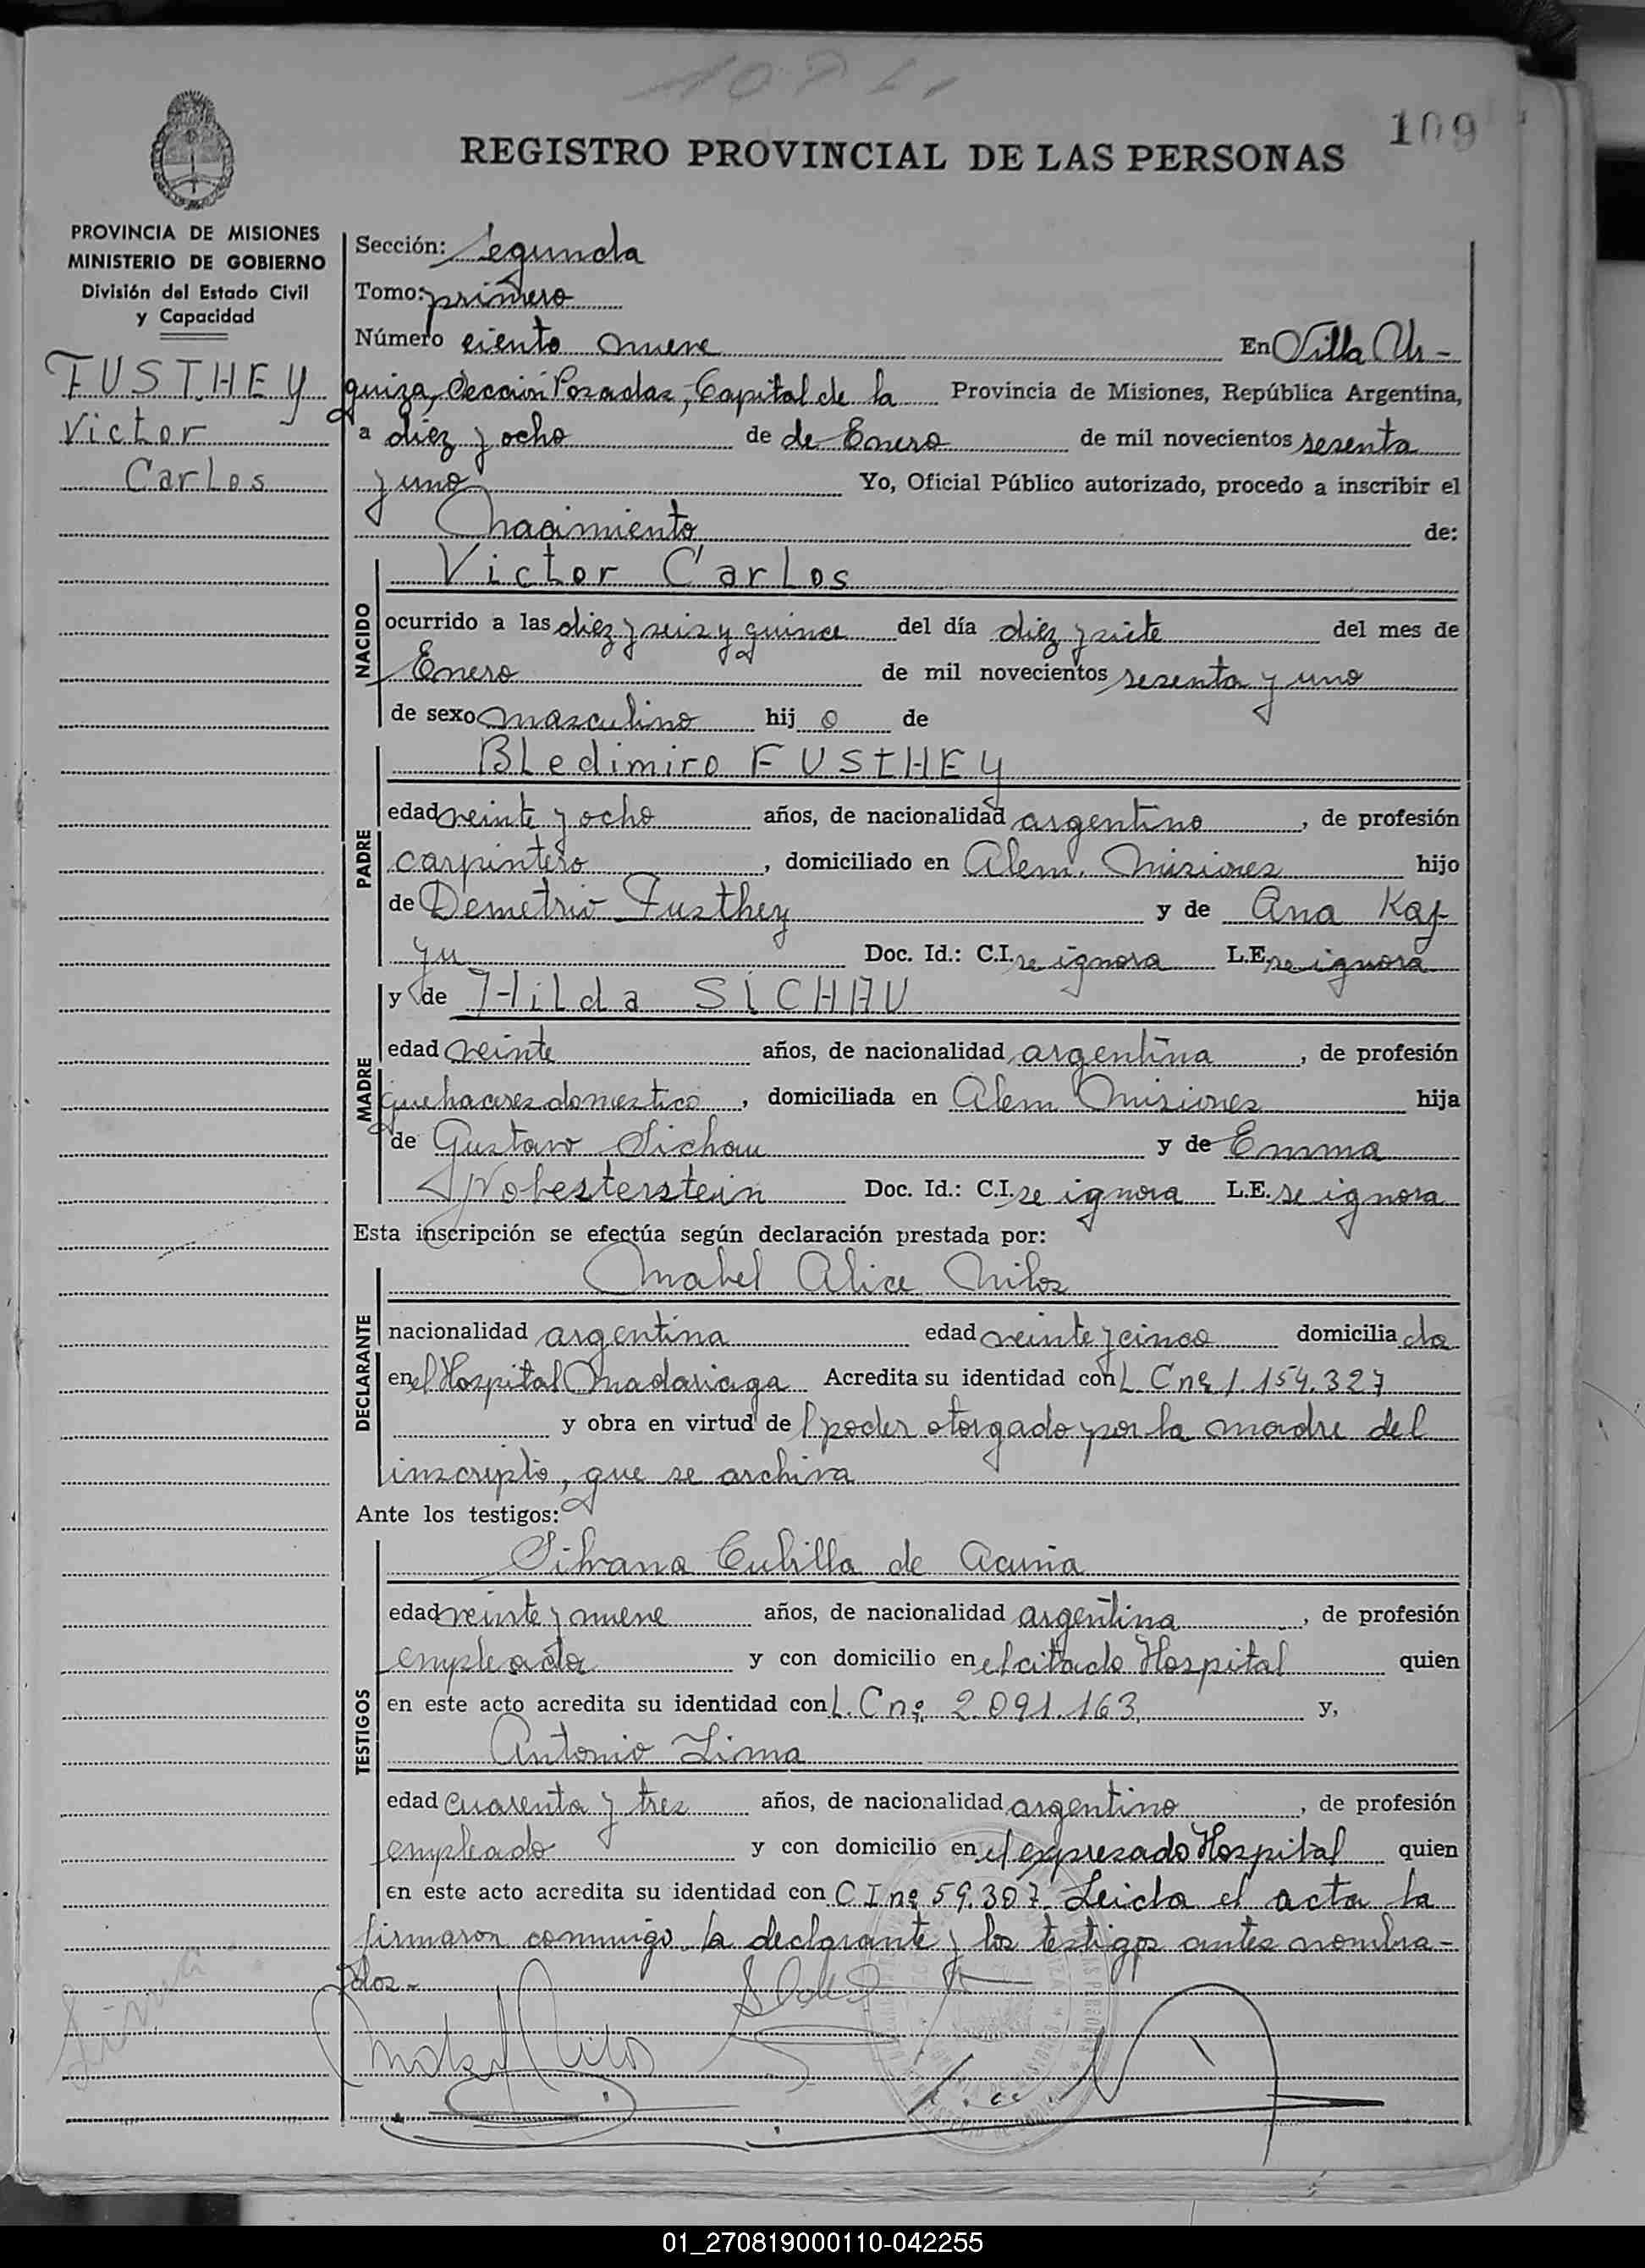 109
REGISTRO PROVINCIAL DE LAS PERSONAS
PROVINCIA DE MISIONES
MINISTERIO DE GOBIERNO
División del Estado Civil
y Capacidad
FUSTHEY
Victor
Carlos
Sección: Segunda
Tomo: primero
Número ciento nueve En Villa Ur-
quiza, Sección Posadas, Capital de la Provincia de Misiones, República Argentina,
a diez y ocho de de Enero de mil novecientos sesenta
y uno Yo, Oficial Público autorizado, procedo a inscribir el
Nacimiento de:
NACIDO
Victor Carlos
ocurrido a las diez y seis y quince del día diez y siete del mes de
Enero de mil novecientos sesenta y uno
de sexo masculino hijo de
PADRE
BLedimiro FUSTHEY
edad veinte y ocho años, de nacionalidad argentino, de profesión
carpintero, domiciliado en Alem. Misiones hijo
de Demetrio Fusthey y de Ana Kaj-
yu Doc. Id.: C.I. se ignora L.E. se ignora
MADRE
y de Hilda SICHAU
edad veinte años, de nacionalidad argentina, de profesión
quehaceres domestico, domiciliada en Alem Misiones hija
de Gustavo Sichau y de Emma
Doc. Id.: C.I. se ignora L.E. se ignora
Esta inscripción se efectúa según declaración prestada por:
DECLARANTE
Mabel Alice Milos
nacionalidad argentina edad veinte y cinco domiciliada
en el Hospital Madariaga Acredita su identidad con L. C nº 1.154.327
y obra en virtud del poder otorgado por la madre del
inscripto, que se archiva
Ante los testigos:
TESTIGOS
Silvana Cubilla de Acuña
edad veinte y nueve años, de nacionalidad argentina, de profesión
empleada y con domicilio en el citado Hospital quien
en este acto acredita su identidad con L. C nº 2.091.163 y,
Antonio Lima
edad cuarenta y tres años, de nacionalidad argentino, de profesión
empleado y con domicilio en el expresado Hospital quien
en este acto acredita su identidad con C I nº 59.307. Leida el acta la
firmaron conmigo la declarante y los testigos antes nombra-
dos.-
01_270819000110-042255